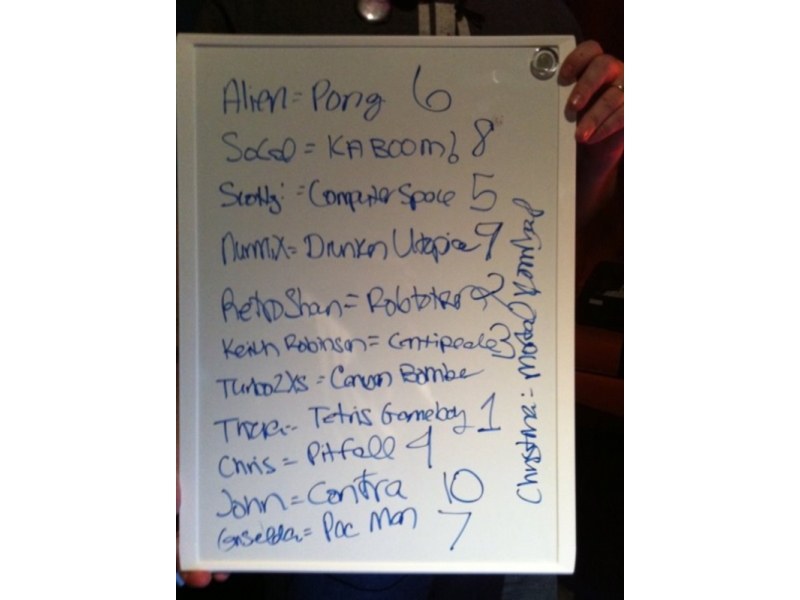 Alien = Pong 6
SoCal = KABOOM! 8
Scotty = Computer Space 5
NurmiX = Drunken Utopia 9
RetroShan = Robotron 2
Keith Robinson = Centipede 3
Turbo2XS = Canyon Bomber
= Tetris Gameboy 1
Chris = Pitfall 4
John = Contra 10
Griselda = Pac Man 7
Christina = Mortal Kombat